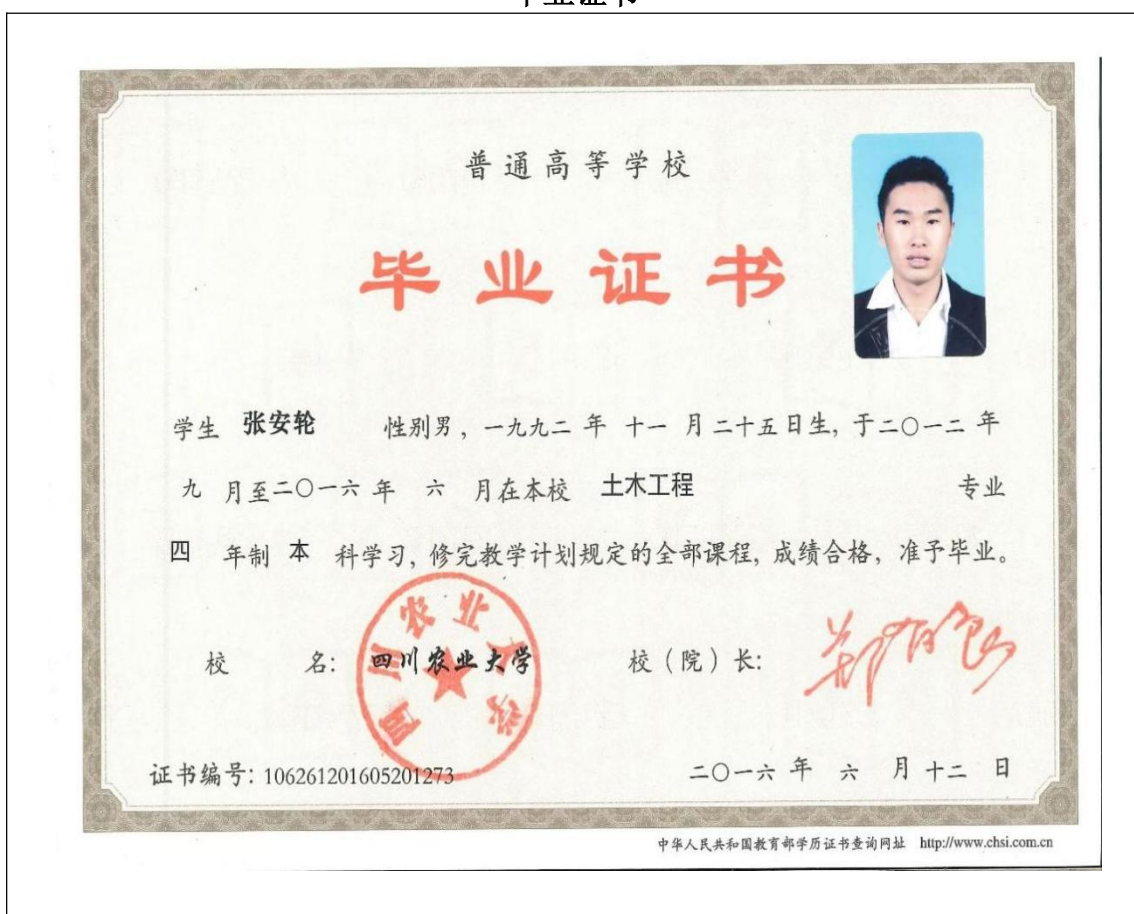 毕业证书
普通高等学校
毕业证书
学生 张安轮 性别男，一九九二 年 十一 月 二十五 日生，于二〇一二 年
九 月至二〇一六 年 六 月在本校 土木工程 专业
四 年制 本 科学习，修完教学计划规定的全部课程，成绩合格，准予毕业。
校 名：四川农业大学 校（院）长：
四川农业大学
证书编号：106261201605201273 二〇一六 年 六 月 十二 日
中华人民共和国教育部学历证书查询网址 http://www.chsi.com.cn